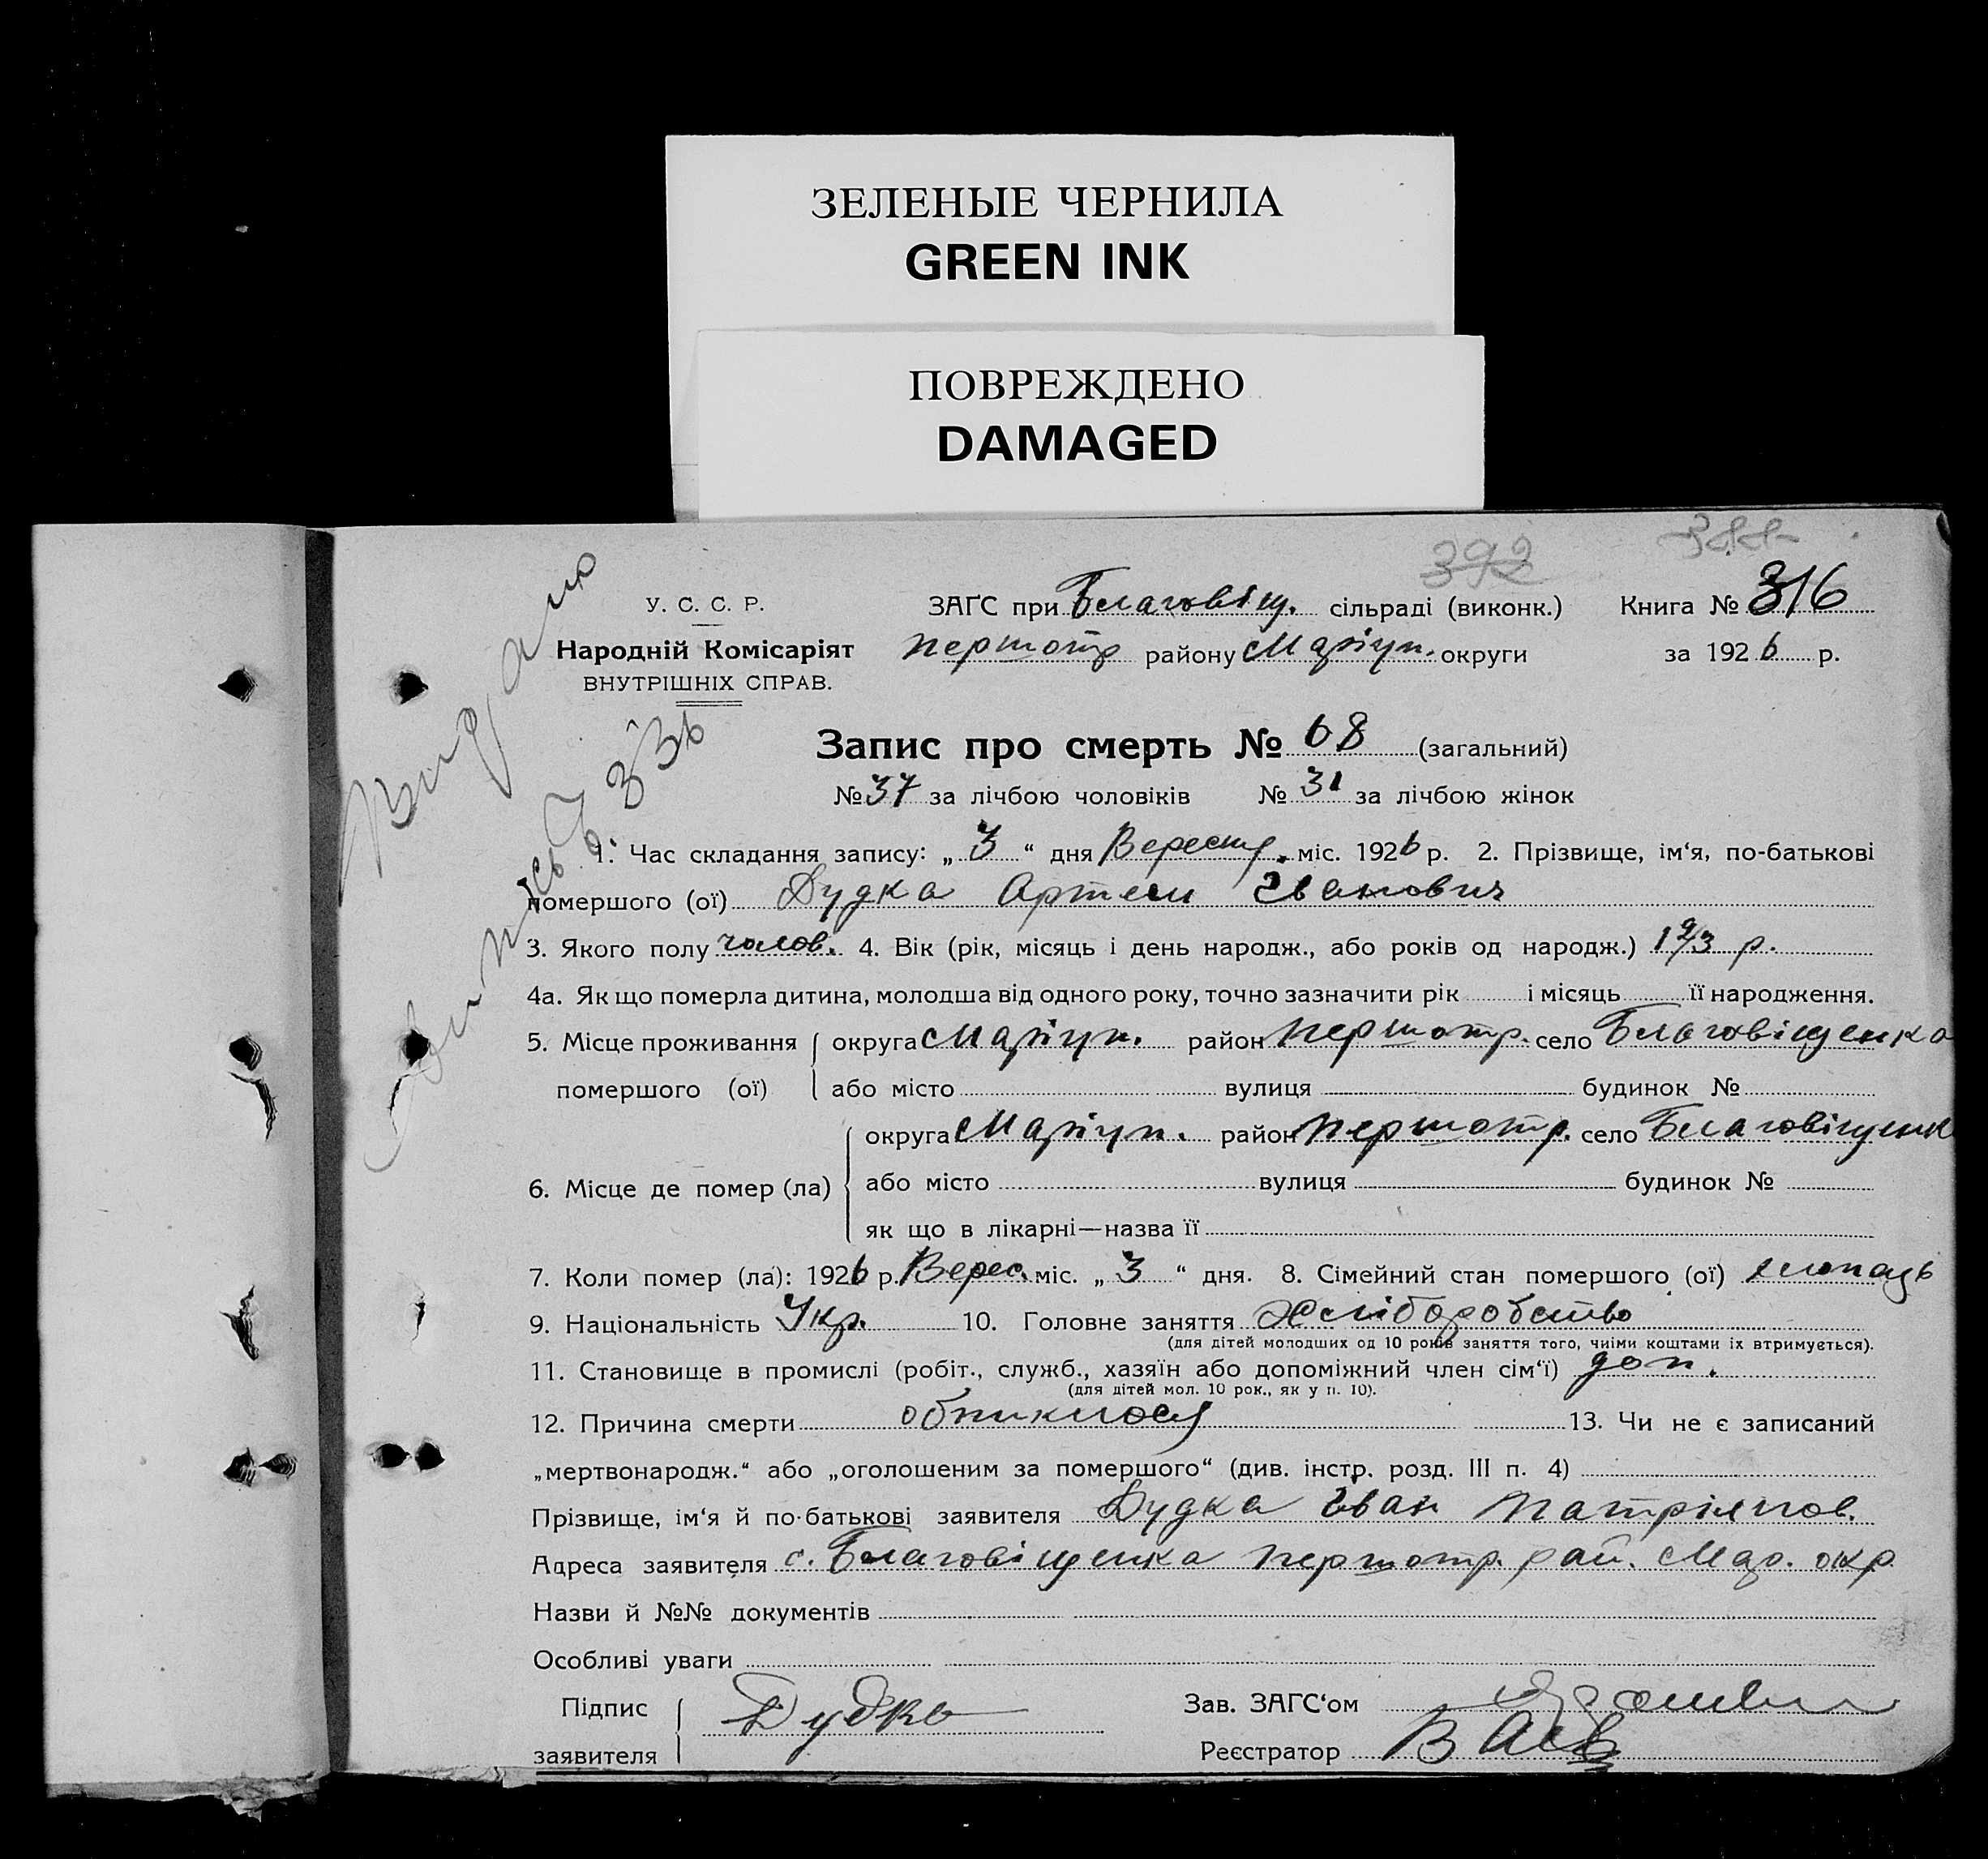 ЗЕЛЕНЫЕ ЧЕРНИЛА
GREEN INK
ПОВРЕЖДЕНО
DAMAGED
392
У. С. С. Р.
ЗАҐС при Благовіщ. сільраді (виконк.) Книга № 316
Народній Комісаріят
ВНУТРІШНІХ СПРАВ.
першотр району Маріуп. округи за 1926 р.
Запис про смерть № 68 (загальний)
№ 37 за лічбою чоловіків № 31 за лічбою жінок
1. Час складання запису: „ 3 “ дня Вересня міс. 1926 р. 2. Прізвище, ім‘я, по-батькові
помершого (ої) Дудка Артем Іванович
3. Якого полу чолов. 4. Вік (рік, місяць і день народж., або років од народж.) 1 2/3 р.
4а. Як що померла дитина, молодша від одного року, точно зазначити рік і місяць її народження.
5. Місце проживання помершого (ої) округа Маріуп. район першотр. село Благовіщенка
або місто вулиця будинок №
6. Місце де помер (ла) округа Маріуп. район першотр. село Благовіщенк
або місто вулиця будинок №
як що в лікарні—назва її
7. Коли помер (ла): 1926 р. Верес. міс. „ 3 “ дня. 8. Сімейний стан помершого (ої) хлопець
9. Національність Укр. 10. Головне заняття Хліборобство
(для дітей молодших од 10 років заняття того, чиїми коштами їх втримується).
11. Становище в промислі (робіт., служб., хазяїн або допоміжний член сім‘ї) доп.
(для дітей мол. 10 рок., як у п. 10).
12. Причина смерти 13. Чи не є записаний
„мертвонародж.“ або „оголошеним за помершого“ (див. інстр. розд. III п. 4)
Прізвище, ім‘я й по-батькові заявителя Дудка Іван
Адреса заявителя с. Благовіщенка першотр. рай. Мар. окр
Назви й №№ документів
Особливі уваги
Підпис заявителя Дудка
Зав. ЗАГС‘ом
Реєстратор